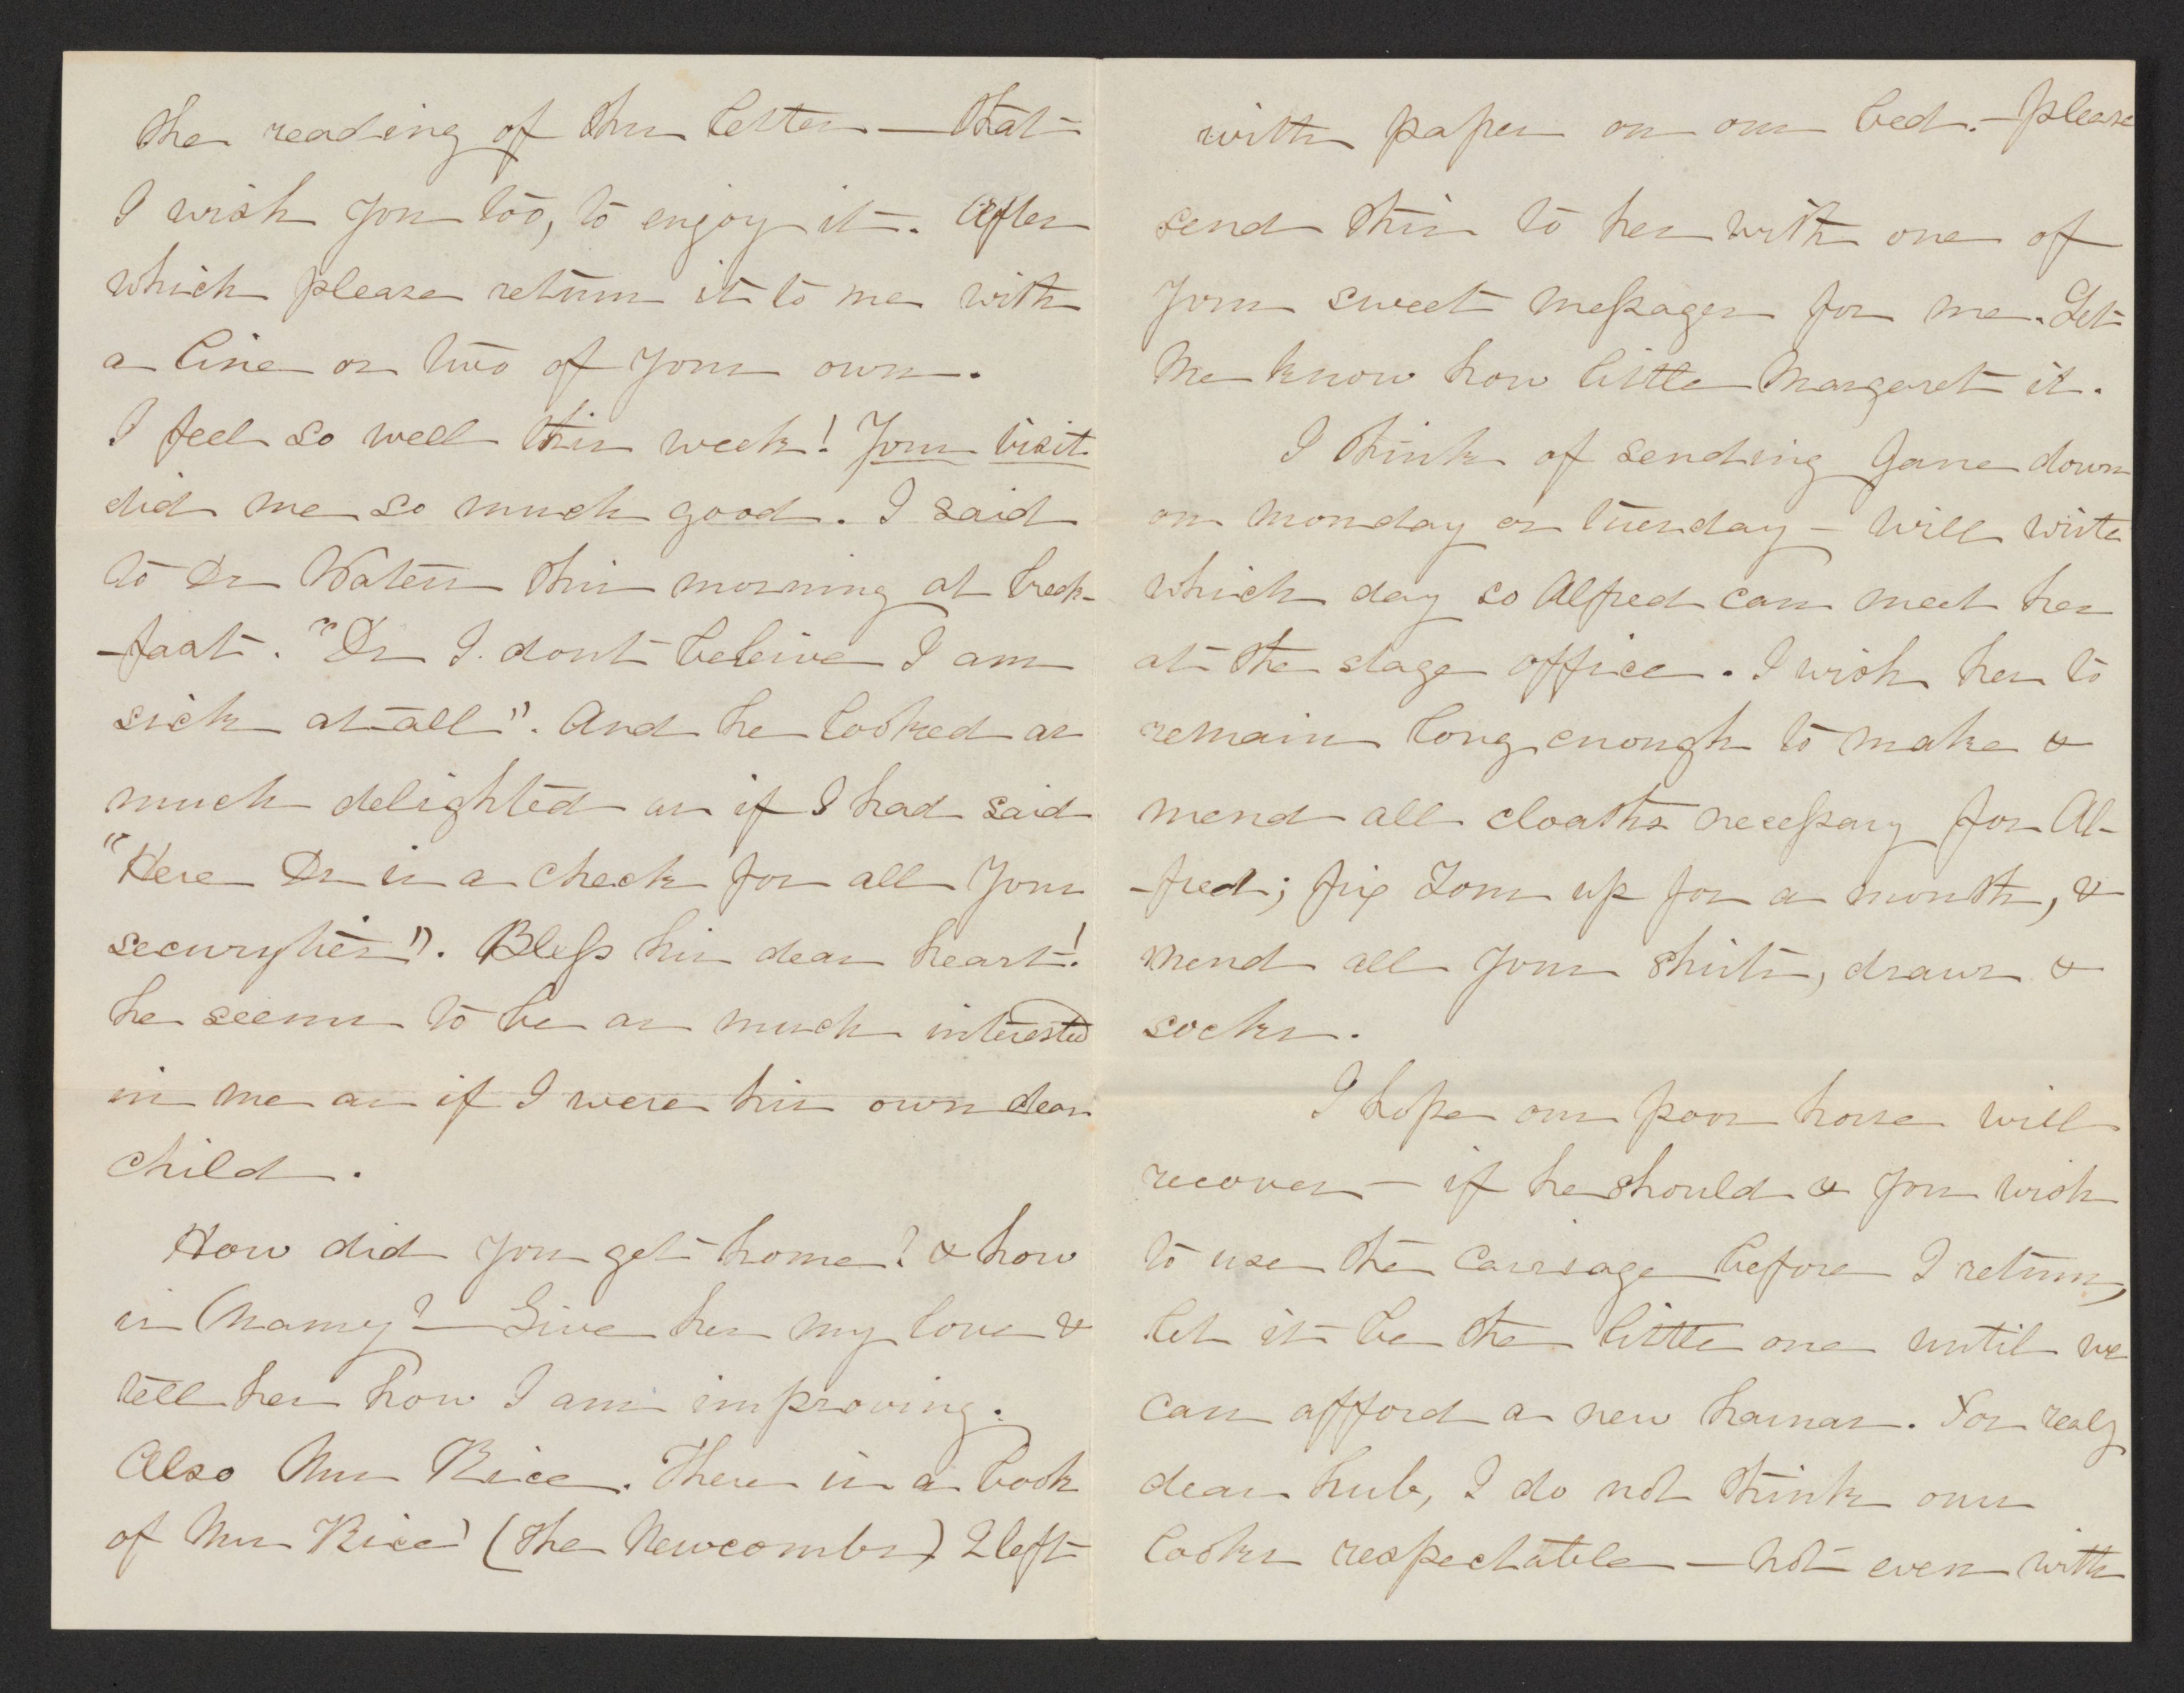 the reading of this letter — that
I wish you too, to enjoy it. After
which please return it to me with
a line or two of your own.
I feel so well this week! Your visit
did me so much good. I said
to Dr Waters this morning at breck-
-fast. "Dr I dont beleive I am
sick at all". And he looked as
much delighted as if I had said
"Here Dr is a check for all your
securyties". Bless his dear heart!
he seems to be as much interested
in me as if I were his own dear
child.
How did you get home? & how
is Mamy? — Give her my love &
tell her how I am improving.
Also Mrs Rice. There is a book
of Mrs Rice' (the Newcombs) I left
with paper on our bed. — please
send this to her with one of
your sweet messages for me. Let
me know how little Margaret is.
I think of sending Jane down
on monday or tuesday — will write
which day so Alfred can meet her
at the stage office. I wish her to
remain long enough to make &
mend all cloaths necessary for Al-
-fred; fix Tom up for a month, &
mend all your shirts, draws &
socks.
I hope our poor horse will
recover — if he should & you wish
to use the carriage before I return,
let it be the little one until we
can afford a new harnas. For realy
dear hub, I do not think ours
looks respectable — not even with